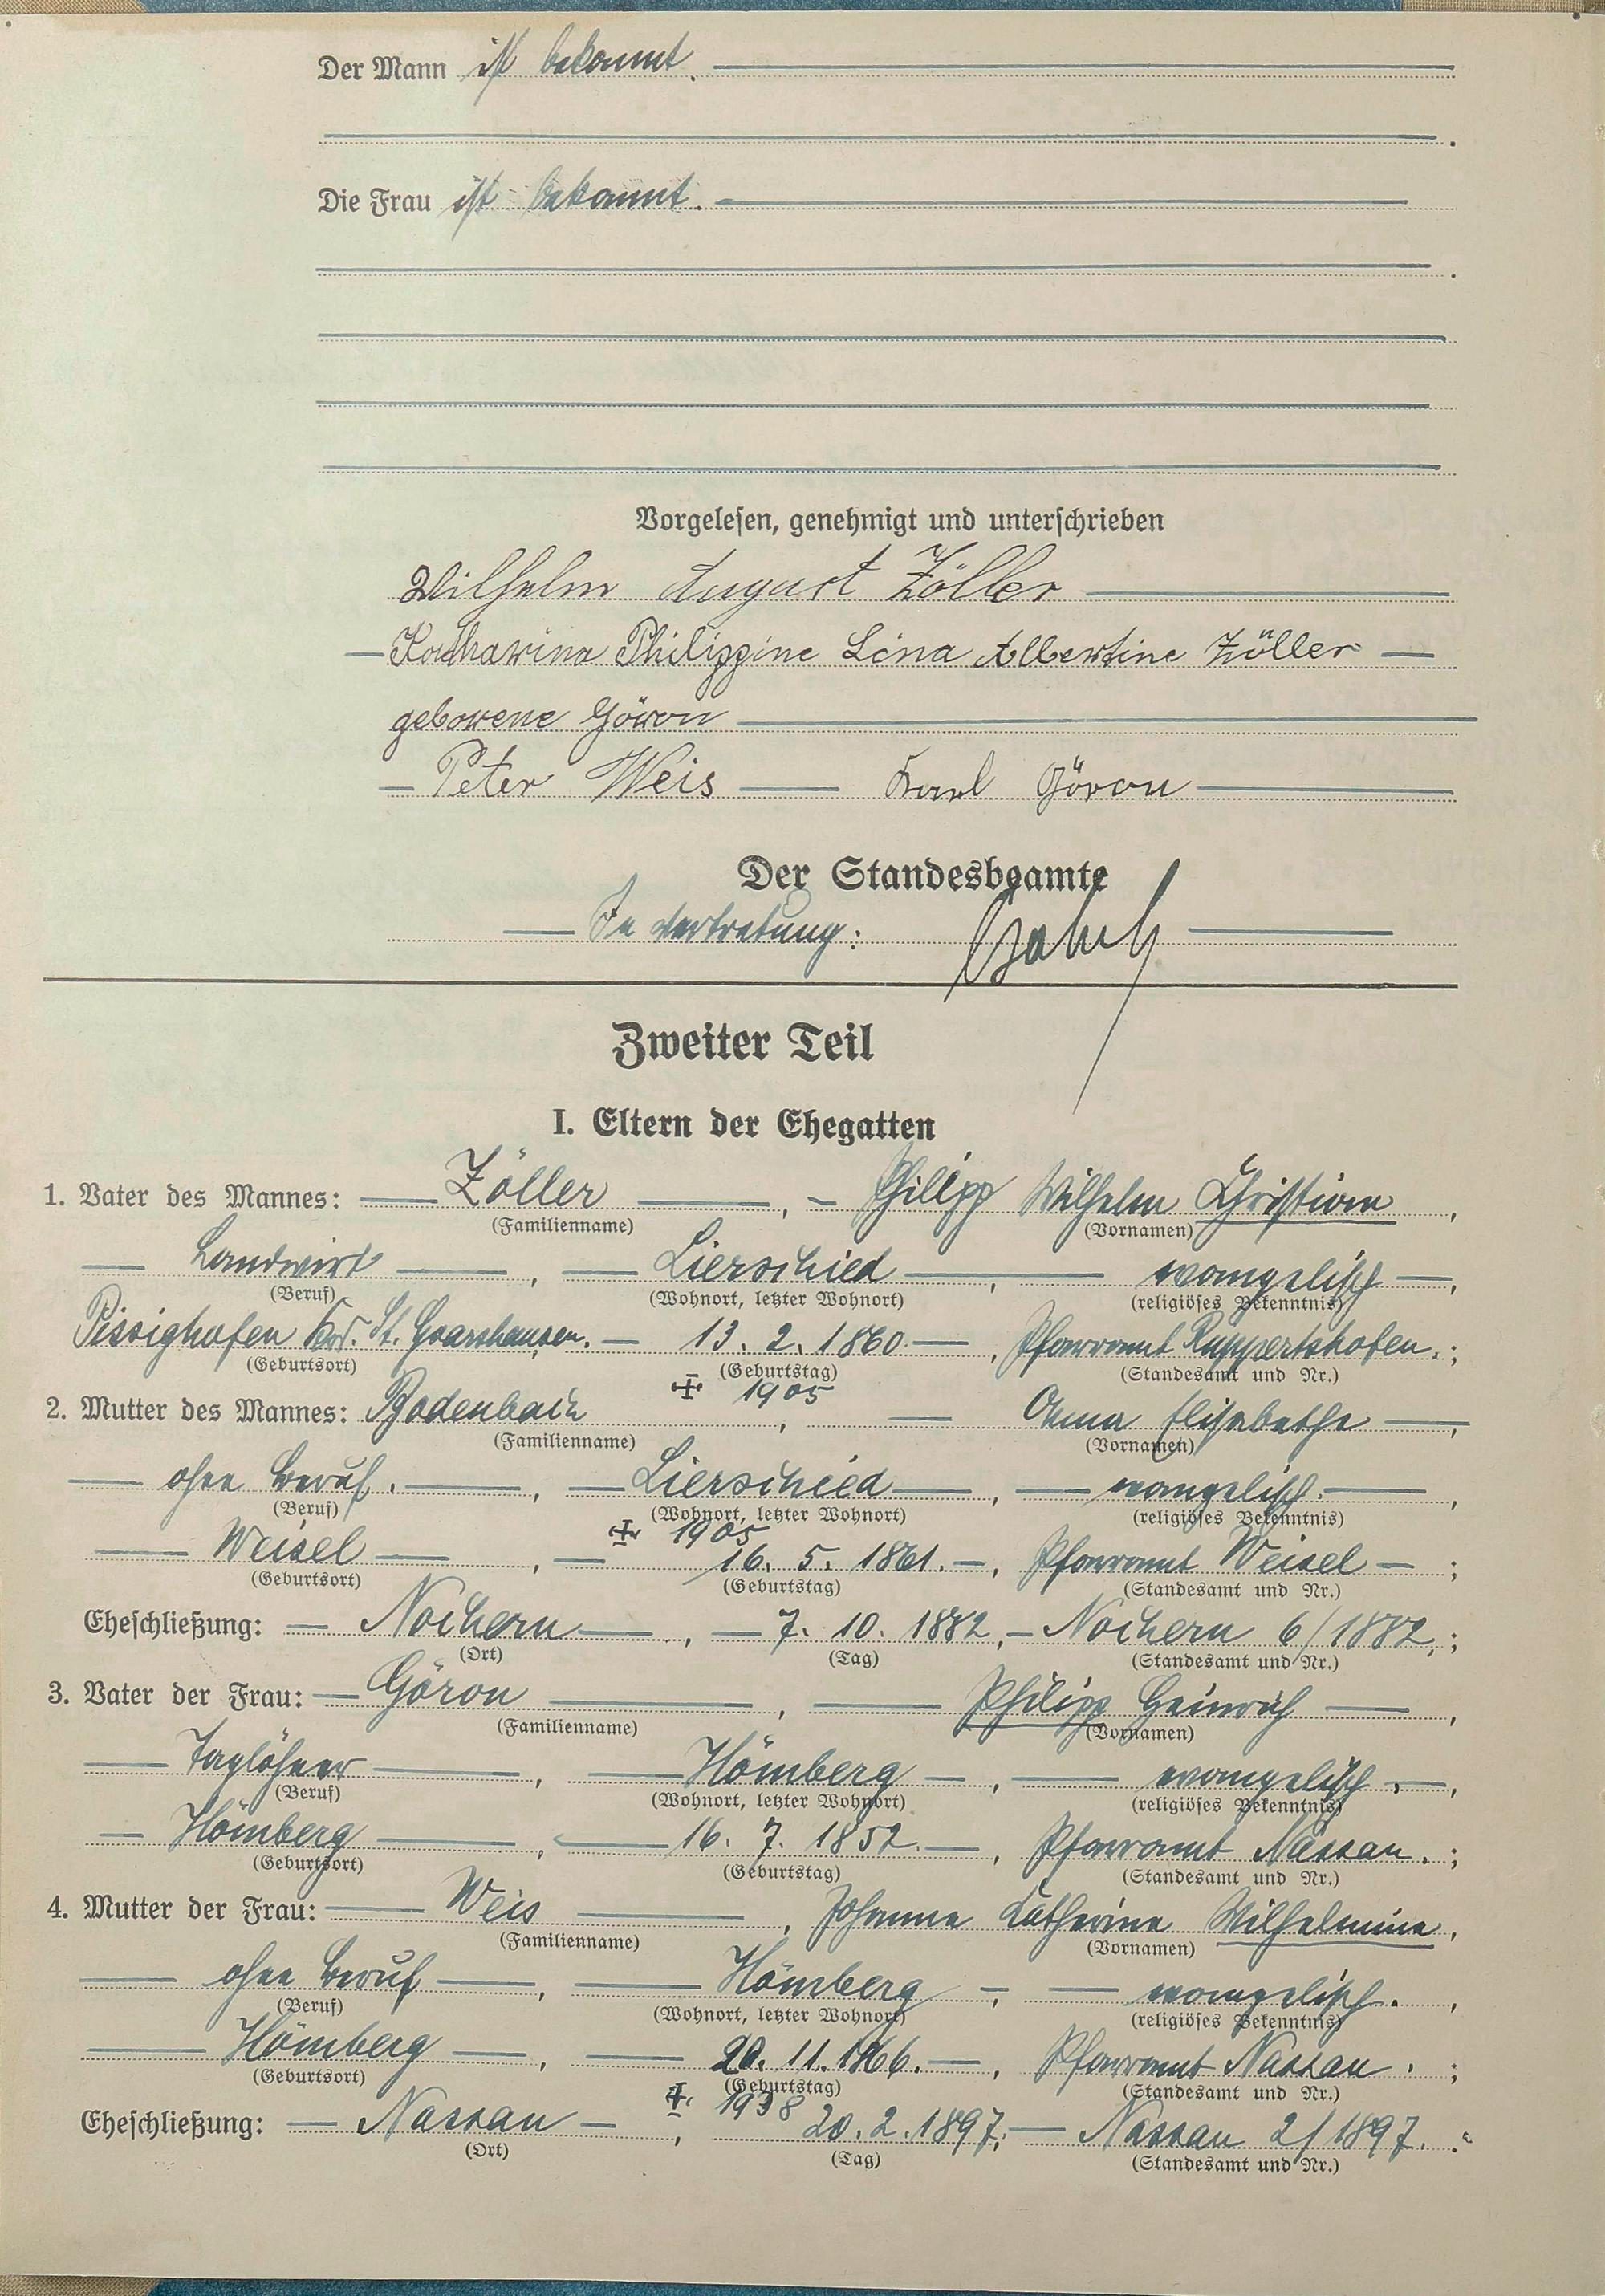 Der Mann ist bekannt.
Die Frau ist bekannt.
Vorgelesen, genehmigt und unterschrieben
Wilhelm August Zöller
Katharina Philippine Lina Albertine Zöller
geborene Göron
Peter Weis Karl Göron
Der Standesbeamte
In Vertretung:
Zweiter Teil
I. Eltern der Ehegatten
1. Vater des Mannes: Zöller, Philipp Wilhelm Christian,
(Familienname) (Vornamen)
Landwirt, Lierschied, evangelisch,
(Beruf) (Wohnort, letzter Wohnort) (religiöses Bekenntnis)
Pissighofen Krs. St. Goarshausen. 13. 2. 1860, Pfarramt Ruppertshofen.;
(Geburtsort) (Geburtstag) (Standesamt und Nr.)
✠ 1905
2. Mutter des Mannes: Bodenbach, Anna Elisabethe,
(Familienname) (Vornamen)
ohne Beruf., Lierschied, evangelisch.,
(Beruf) (Wohnort, letzter Wohnort) (religiöses Bekenntnis)
✠ 1905
Weisel, 16. 5. 1861., Pfarramt Weisel;
(Geburtsort) (Geburtstag) (Standesamt und Nr.)
Eheschließung: Nochern, 7. 10. 1882, Nochern 6/1882.;
(Ort) (Tag) (Standesamt und Nr.)
3. Vater der Frau: Göron, Philipp Heinrich,
(Familienname) (Vornamen)
Taglöhner, Hömberg, evangelisch.,
(Beruf) (Wohnort, letzter Wohnort) (religiöses Bekenntnis)
Hömberg, 16. 7. 1852., Pfarramt Nassau.;
(Geburtsort) (Geburtstag) (Standesamt und Nr.)
4. Mutter der Frau: Weis, Johanna Katherine Wilhelmine,
(Familienname) (Vornamen)
ohne Beruf, Hömberg, evangelisch.,
(Beruf) (Wohnort, letzter Wohnort) (religiöses Bekenntnis)
Hömberg, 20. 11. 1866., Pfarramt Nassau.;
(Geburtsort) (Geburtstag) (Standesamt und Nr.)
✠ 1938
Eheschließung: Nassau, 20. 2. 1897, Nassau 2/1897.
(Ort) (Tag) (Standesamt und Nr.)